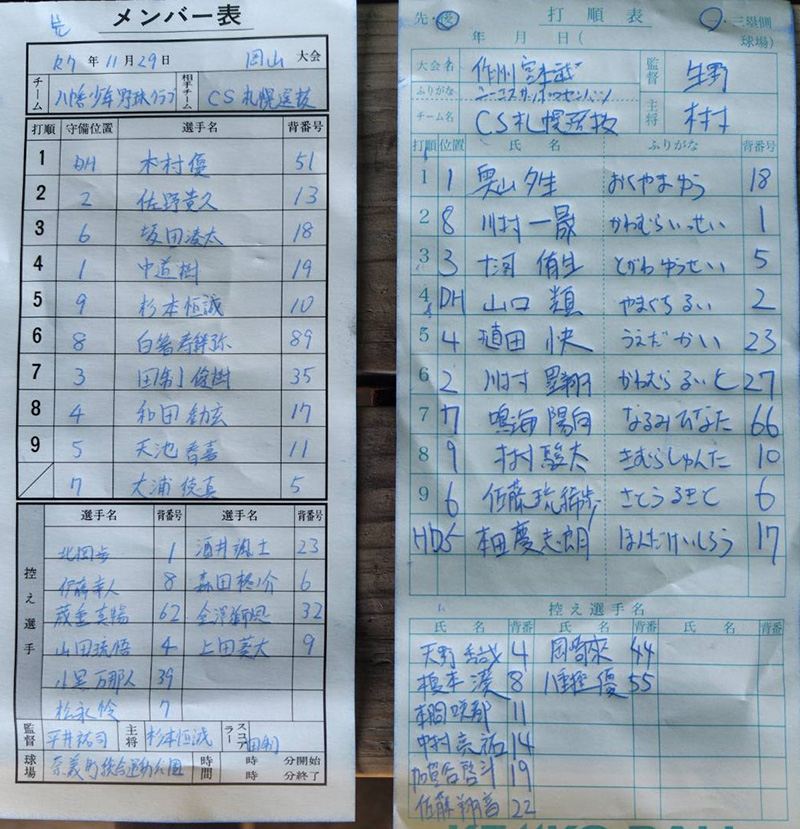 先 メンバー表
R7 年 11 月 29 日 岡山 大会
チーム 八幡少年野球クラブ 相手チーム CS札幌選抜
打順 守備位置 選手名 背番号
1 DH 木村優 51
2 2 佐野貴久 13
3 6 坂田凌太 18
4 1 中道樹 19
5 9 杉本恒誠 10
6 8 白箸寿 弥 89
7 3 田制 俊樹 35
8 4 和田 玄 17
9 5 天池春嘉 11
7 大浦 真 5
控え選手
選手名 背番号 選手名 背番号
北岡歩 1 酒井颯士 23
伊藤幸人 8 森田 介 6
茂 真 62 金澤獅恩 32
山田琉悟 4 上田葵大 9
小黒万那人 39
松永怜 7
監督 平井祐司 主将 杉本恒誠 スコアラー 田制
球場 奈義町総合運動公園 時間 時 分開始
時 分終了
先・後 打順表 ・三塁側
年 月 日( 球場)
大会名 作州宮本武 監督 生野
ふりがな
チーム名 CS札幌選抜 主将 木村
打順 位置 氏 名 ふりがな 背番号
1 1 奥山夕生 おくやまゆう 18
2 8 川村一晟 かわむらいっせい 1
3 3 十河侑生 とがわゆうせい 5
4 DH 山口類 やまぐちるい 2
5 4 植田快 うえだかい 23
6 2 川村塁翔 かわむらるいと 27
7 7 鳴海陽向 なるみひなた 66
8 9 木村駿太 きむらしゅんた 10
9 6 佐藤琉 さとうるきと 6
HD5 本田慶志朗 ほんだけいしろう 17
控え選手名
氏 名 背番 氏 名 背番 氏 名 背番
天野 4 岡崎來 44
榎本湊 8 八重樫優 55
本間咲都 11
中村亮祐 14
加賀谷啓斗 19
佐藤翔音 22